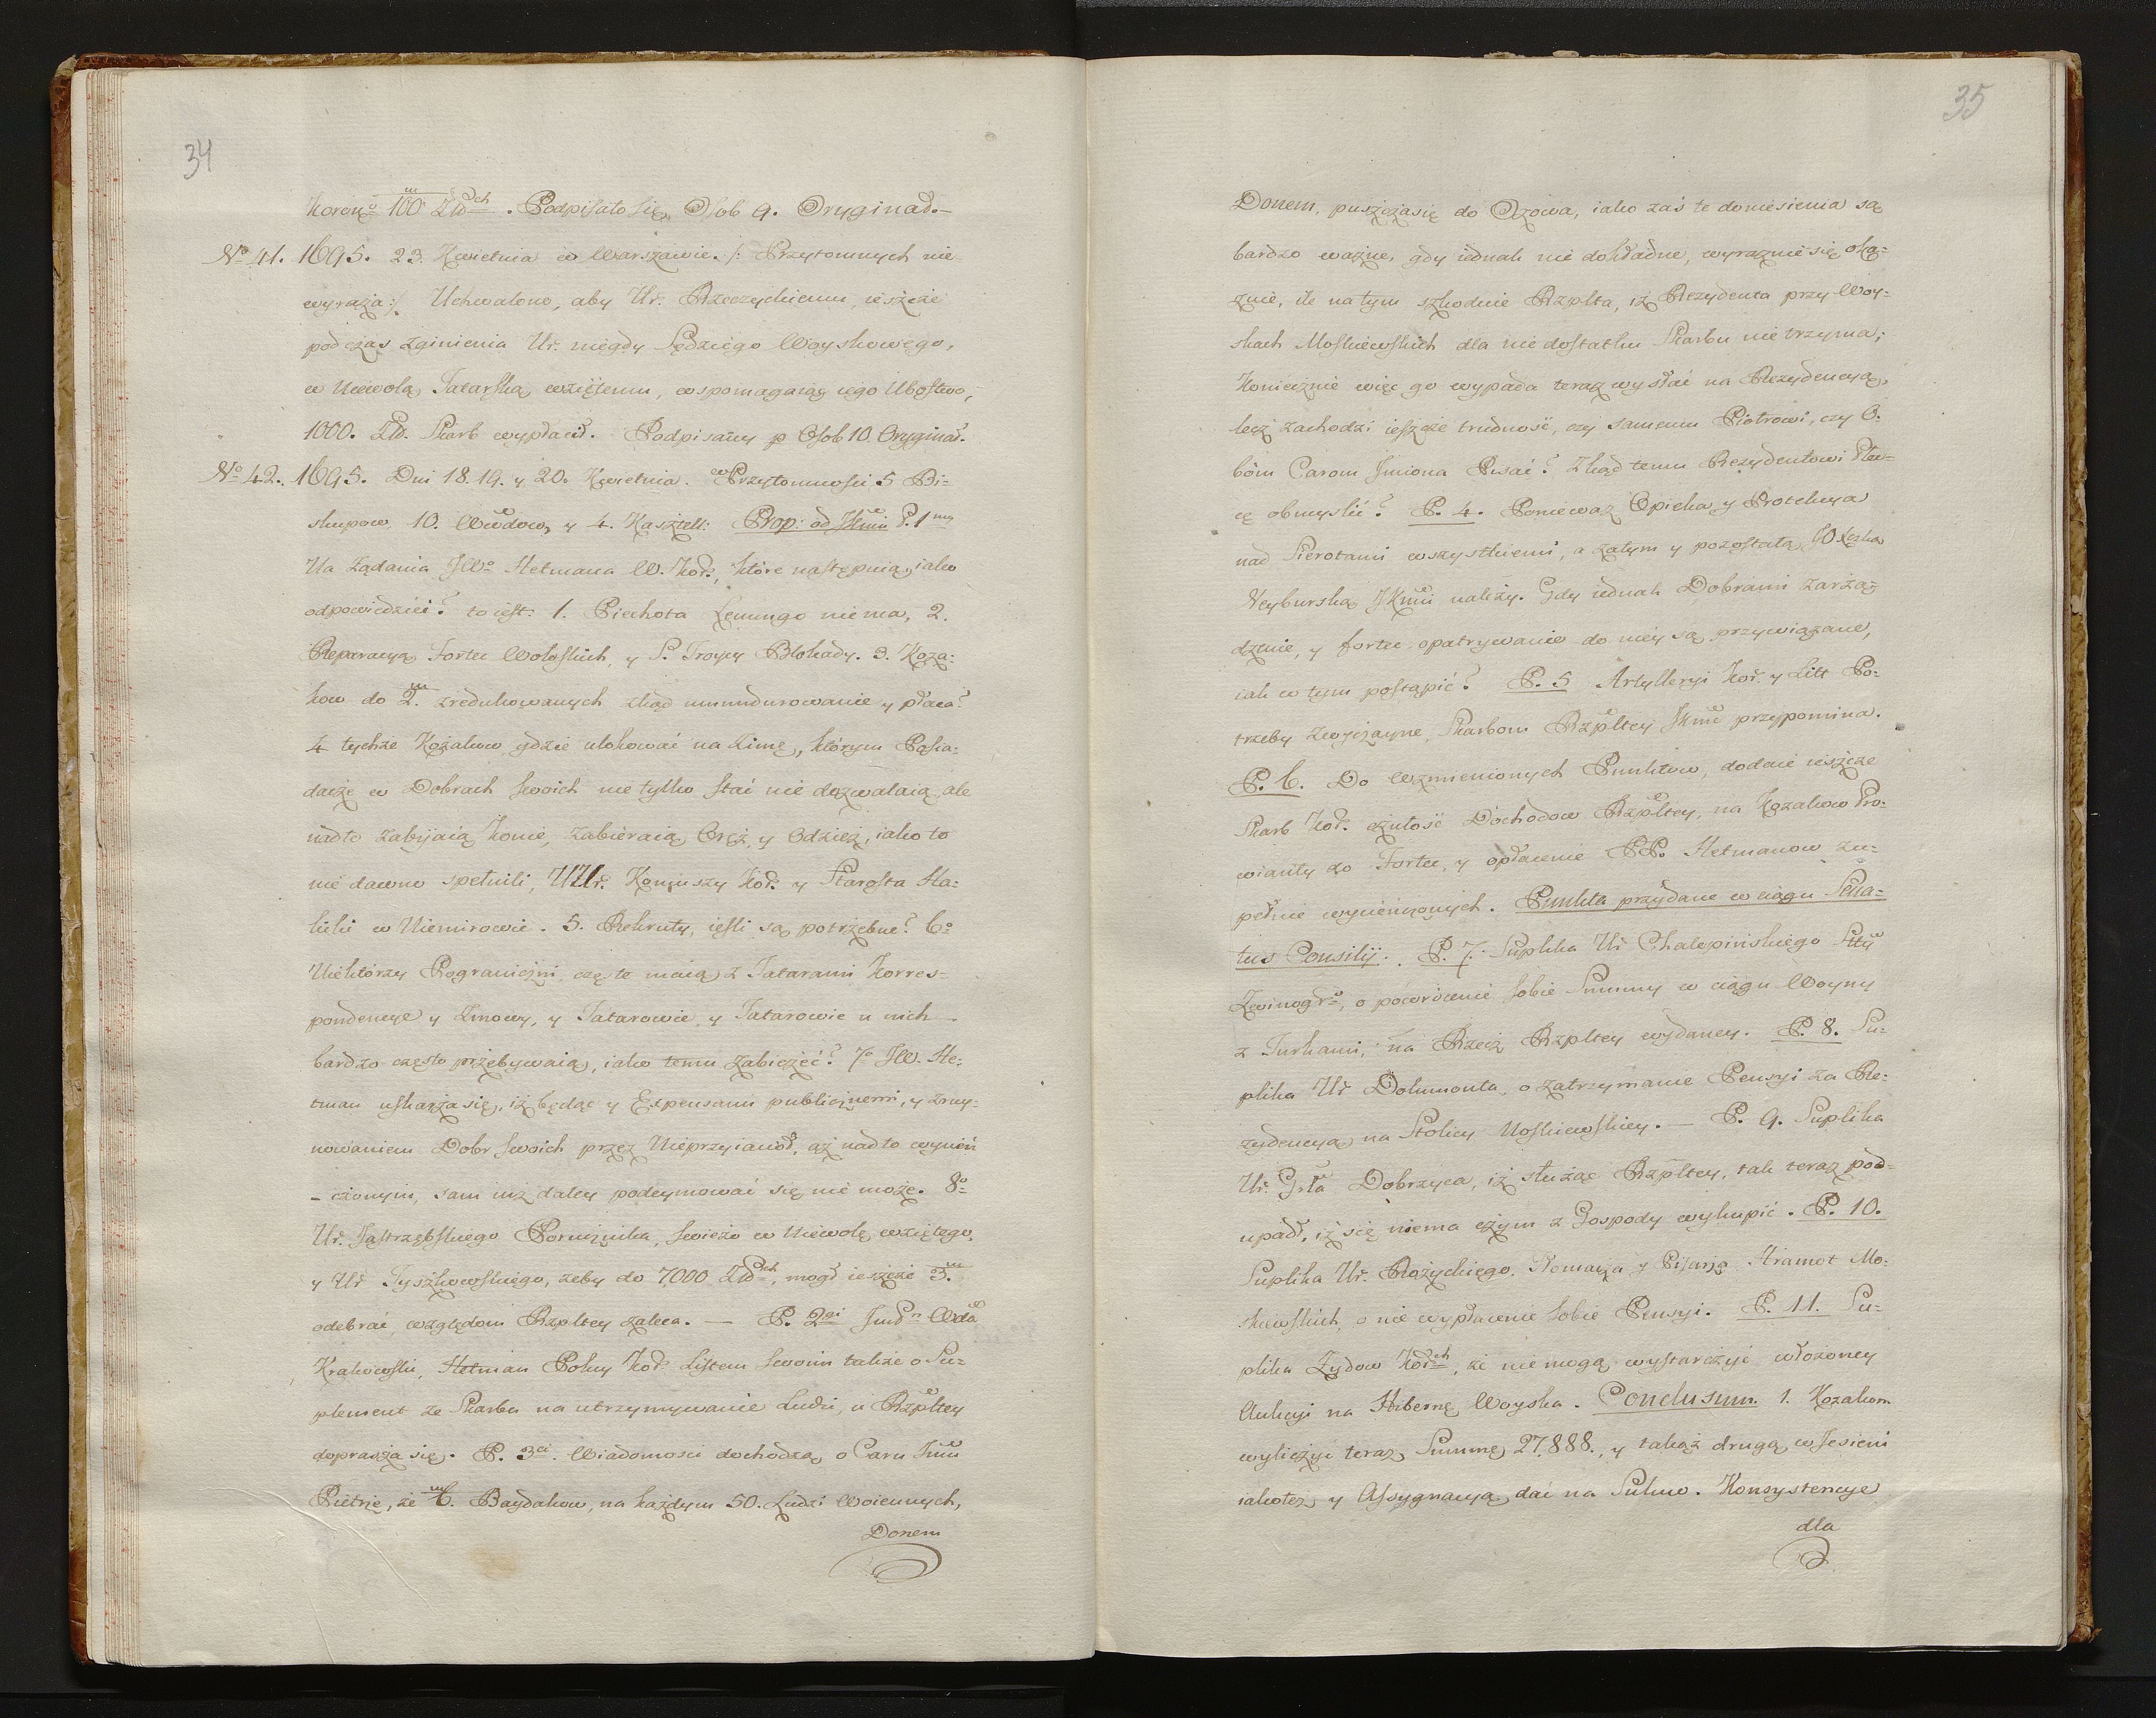 34
Koren⁰ 100 Złch. Podpisało się Osob 9. Oryginał.
No 41. 1695. 23. Kwietnia w Warszawie. /: Przytomnych nie
wyraża :/ Uchwalono, aby Ur. Rzeczyckiemu ieszcze
podczas zginienia Ur. niegdy Sędziego Woyskowego,
w Niewolą Tatarską wziętemu, wspomagaiąc iego Ubostwo,
1000. Zł. Skarb wypłacił. Podpisany p Osob 10. Oryginał.
No 42. 1695. Dni 18. 19. y 20. Kwietnia. w Przytomności 5 Bi-
skupow, 10. Wwdow, y 4. Kasztell: Prop: od JKmci P. 1mo
Na Żądania JWo Hetmana W. Kor., które następuią, iako
odpowiedzieć? to iest: 1. Piechota Lenungo niema, 2.
Reparacya Fortec Wołoskich, y S. Troycy Blokady. 3. Koza-
kow do 2.m zredukowanych zkąd umundurowanie y płaca?
4 tychże Kozakow gdzie ulokować na Zimę, którym Posia-
dacze w Dobrach swoich nie tylko stać nie dozwalaią, ale
nadto zabijaią Konie, zabieraią Oręż y Odzież, iako to
nie dawno spełnili, UUr. Koniuszy Kor. y Starosta Ha-
licki w Niemirowie. 5. Rekruty, ieśli są potrzebne? 6o
Niektórzy Pograniczni często maią z Tatarami Korres-
pondencye y Zmowy, y Tatarowie y Tatarowie u nich
bardzo często przebywaią, iako temu zabieżeć? 7o JW. He-
tman uskarża się, iż będąc y Expensami publicznemi, y zruy-
nowaniem Dobr swoich przez Nieprzyiacioł, aż nadto wynień
- czonym, sam iuż daley podeymować się nie może. 8o
Ur. Jastrzębskiego Porucznika, świeżo w Niewolę wziętego,
y Ur Tyszkowskiego, żeby do 7000 Złch, mogł ieszcze 3.m
odebrać, względom Rzpltey zaleca. — P. 2gi Wda
Krakowski, Hetman Polny Kor. Listem swoim także o Su-
plement ze Skarbu na utrzymywanie Ludzi, u Rzpltey
doprasza się. P. 3ci. Wiadomości dochodzą o Caru Jmci
Pietrze, że 6.m Baydakow, na każdym 50. Ludzi Woiennych,
Donem
35
Donem, puszcza się do Ozowa, iako zaś te doniesienia są
bardzo ważne, gdy iednak nie dokładne, wyraznie się oka-
zuie, ile na tym szkoduie Rzplta, iż Rezydenta przy Woy-
skach Moskiewskich dla niedostatku Skarbu nie trzyma;
Koniecznie więc go wypada teraz wysłać na Rezydencyą,
lecz zachodzi ieszcze trudność, czy samemu Piotrowi, czy O-
bóm Carom Jmiona Pisać? Zkąd temu Rezydentowi Pła-
cę obmyślić? P. 4. Ponieważ Opieka y Protekcya
nad Sierotami wszystkiemi, a zatym y pozostałą JO Xzką
Neyburską JKmci należy. Gdy iednak Dobrami zarzą-
dzenie, y fortec opatrywanie do niey są przywiązane,
iak w tym postąpić? P. 5 Artylleryi Kor. y Litt Po-
trzeby zwyczayne, Skarbom Rzpltey JKmć przypomina.
P. 6. Do wzmienionych Punktow, dodaie ieszcze
Skarb Kor. czułość Dochodow Rzpltey, na Kozakow Pro-
wianty do Fortec, y opłacenie PP. Hetmanow zu-
pełnie wycieńczonych. Punkta przydane w ciągu Sena-
tus Consilij. P. 7. Suplika Ur Chalepińskiego Stty
Zwinogro, o powrócenie sobie Summy w ciągu Woyny
z Turkami, na Rzecz Rzpltey wydaney. P. 8. Su-
plika Ur Dokumonta, o zatrzymanie Pensyi za Re-
zydencyą na Stolicy Moskiewskiey. — P. 9. Suplika
Ur. Grła Dobrzyca, iż służąc Rzpltey, tak teraz pod-
upadł, iż się niema czym z Gospody wykupić. P. 10.
Suplika Ur. Rożyckiego Tłomacza y Pisarza Hramot Mo-
skiewskich, o nie wypłacenie sobie Pensyi. P. 11. Su-
plika Zydow Korch, że niemogą wystarczyć włożoney
Aukcyi na Hibernę Woyska. Conclusum. 1. Kozakom
wyliczyć teraz Summę 27,888., y takąż drugą w Jesieni
iakoteż y Assygnacyą dać na Sukno. Konsystencye
dla